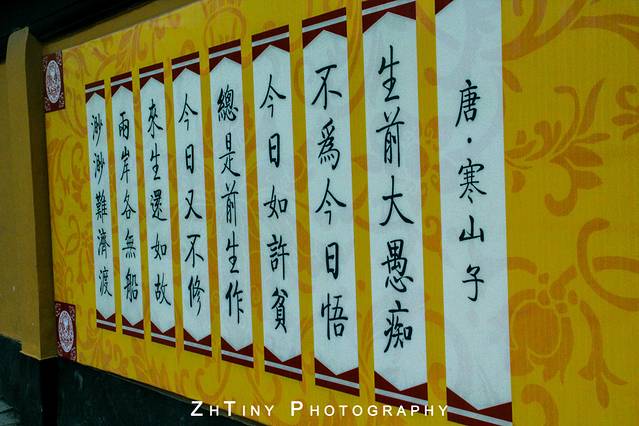 唐·寒山子
生前大愚痴
不為今日悟
今日如許貧
總是前生作
今日又不修
來生還如故
兩岸各無船
渺渺難濟渡
ZHTINY PHOTOGRAPHY